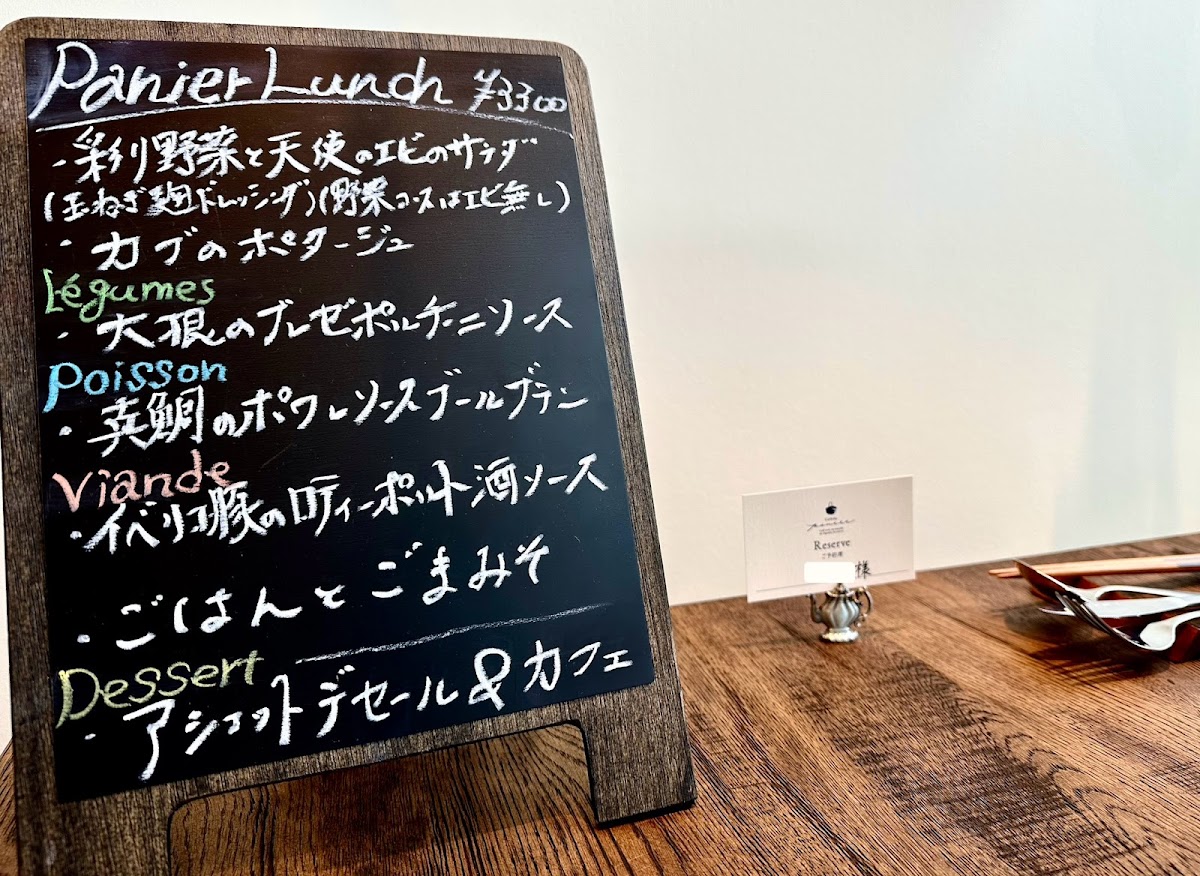 Panier Lunch ¥3300
・彩り野菜と天使のエビのサラダ
(玉ねぎ麹ドレッシング)(野菜コースはエビ無し)
・カブのポタージュ
Légumes
・大根のブレゼポルチーニソース
Poisson
・真鯛のポワレソースブールブラン
Viande
・イベリコ豚のロティーポルト酒ソース
・ごはんとごまみそ
Dessert
・アシェットデセール&カフェ
Reserve
ご予約席
様